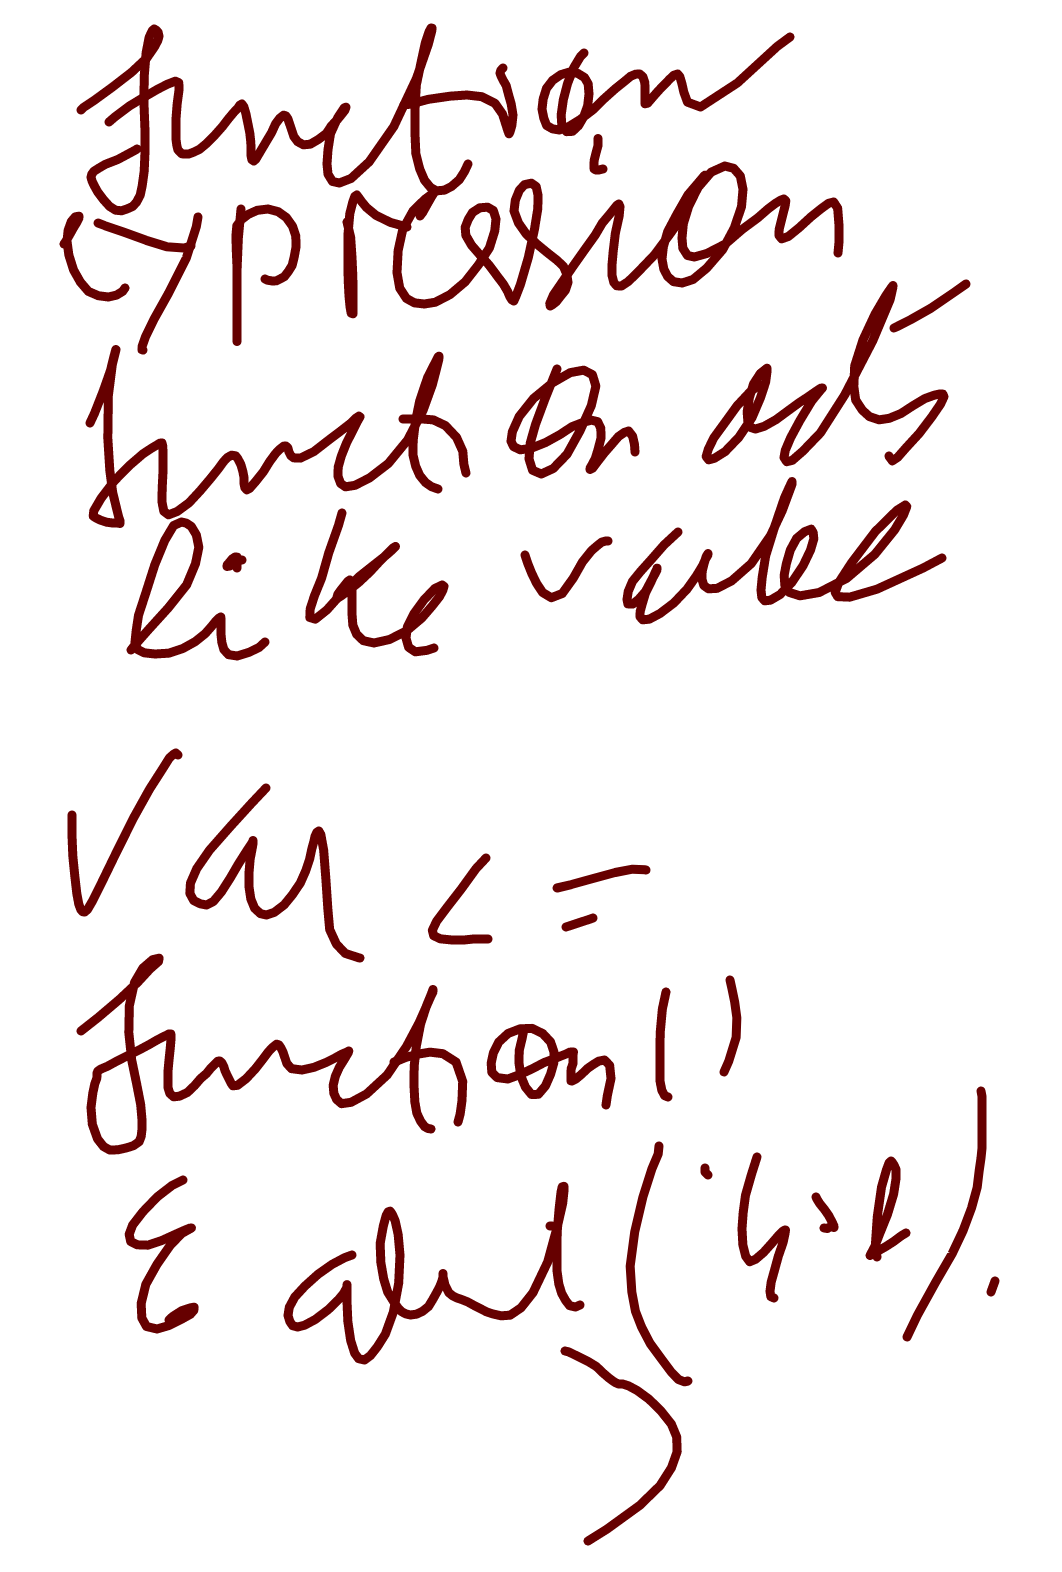 function
expression
function acts
like value
var c =
function ()
{ alert (
}